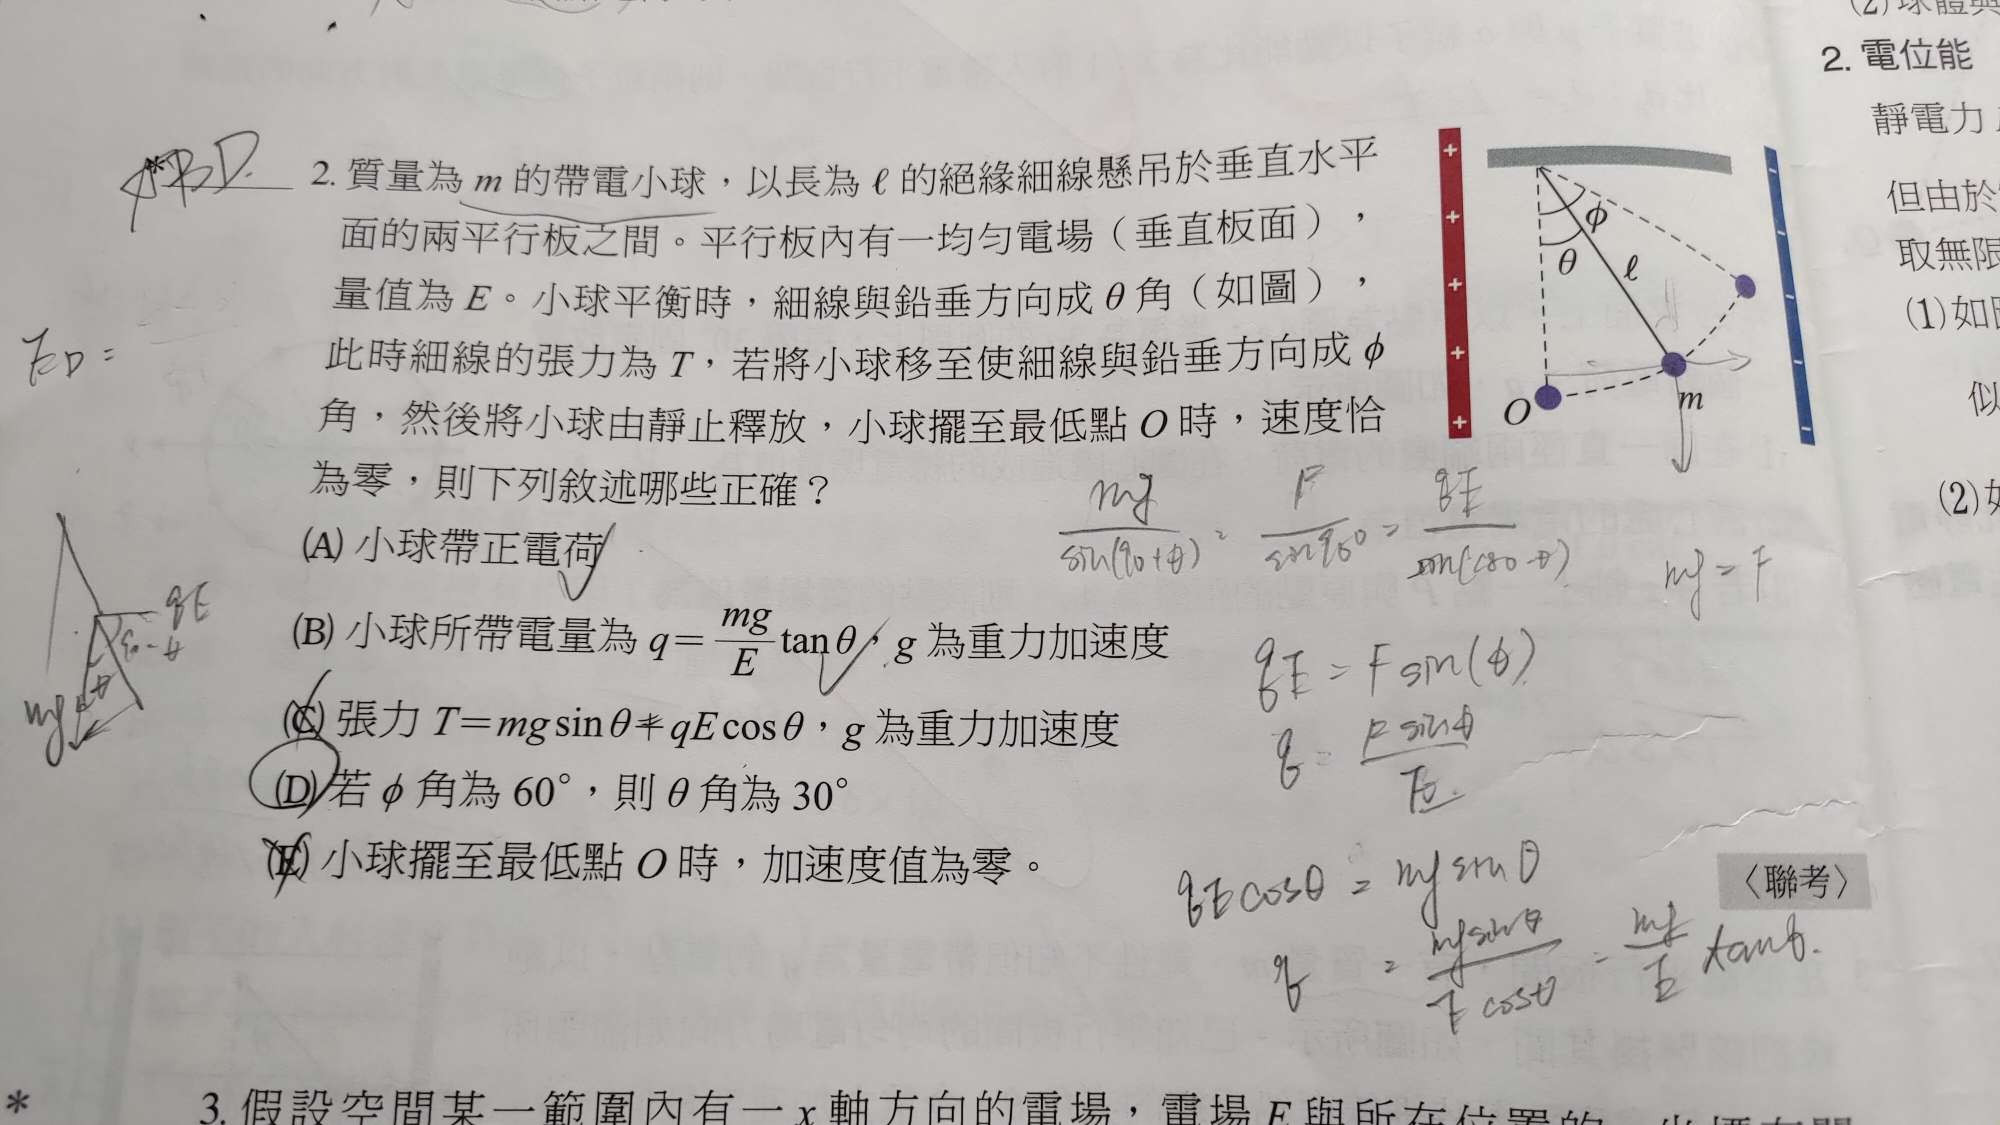 (2) 球體與
2. 電位能
靜電力
但由於
取無限
(1) 如
似
(2) 如
ABD.
*
2. 質量為 m 的帶電小球，以長為 ℓ 的絕緣細線懸吊於垂直水平
面的兩平行板之間。平行板內有一均勻電場（垂直板面），
量值為 E。小球平衡時，細線與鉛垂方向成 θ 角（如圖），
此時細線的張力為 T，若將小球移至使細線與鉛垂方向成 ϕ
角，然後將小球由靜止釋放，小球擺至最低點 O 時，速度恰
為零，則下列敘述哪些正確？
(A) 小球帶正電荷
(B) 小球所帶電量為 q = mg/E tan θ，g 為重力加速度
(C) 張力 T = mg sin θ + qE cos θ，g 為重力加速度
(D) 若 ϕ 角為 60°，則 θ 角為 30°
(E) 小球擺至最低點 O 時，加速度值為零。
〈聯考〉
+ + + + +
ϕ
θ
ℓ
O
m
mg/sin(90+θ) = F/sin90° = qE/sin(180-θ)
mg = F
qE = F sin(θ)
q = F sinθ/E.
qE cosθ = mg sinθ
q = mg sinθ/E cosθ = mg/E tanθ.
qE
90-θ
θ
mg
3. 假設空間某一範圍內有一 x 軸方向的電場，電場 E 與所在位置的
*